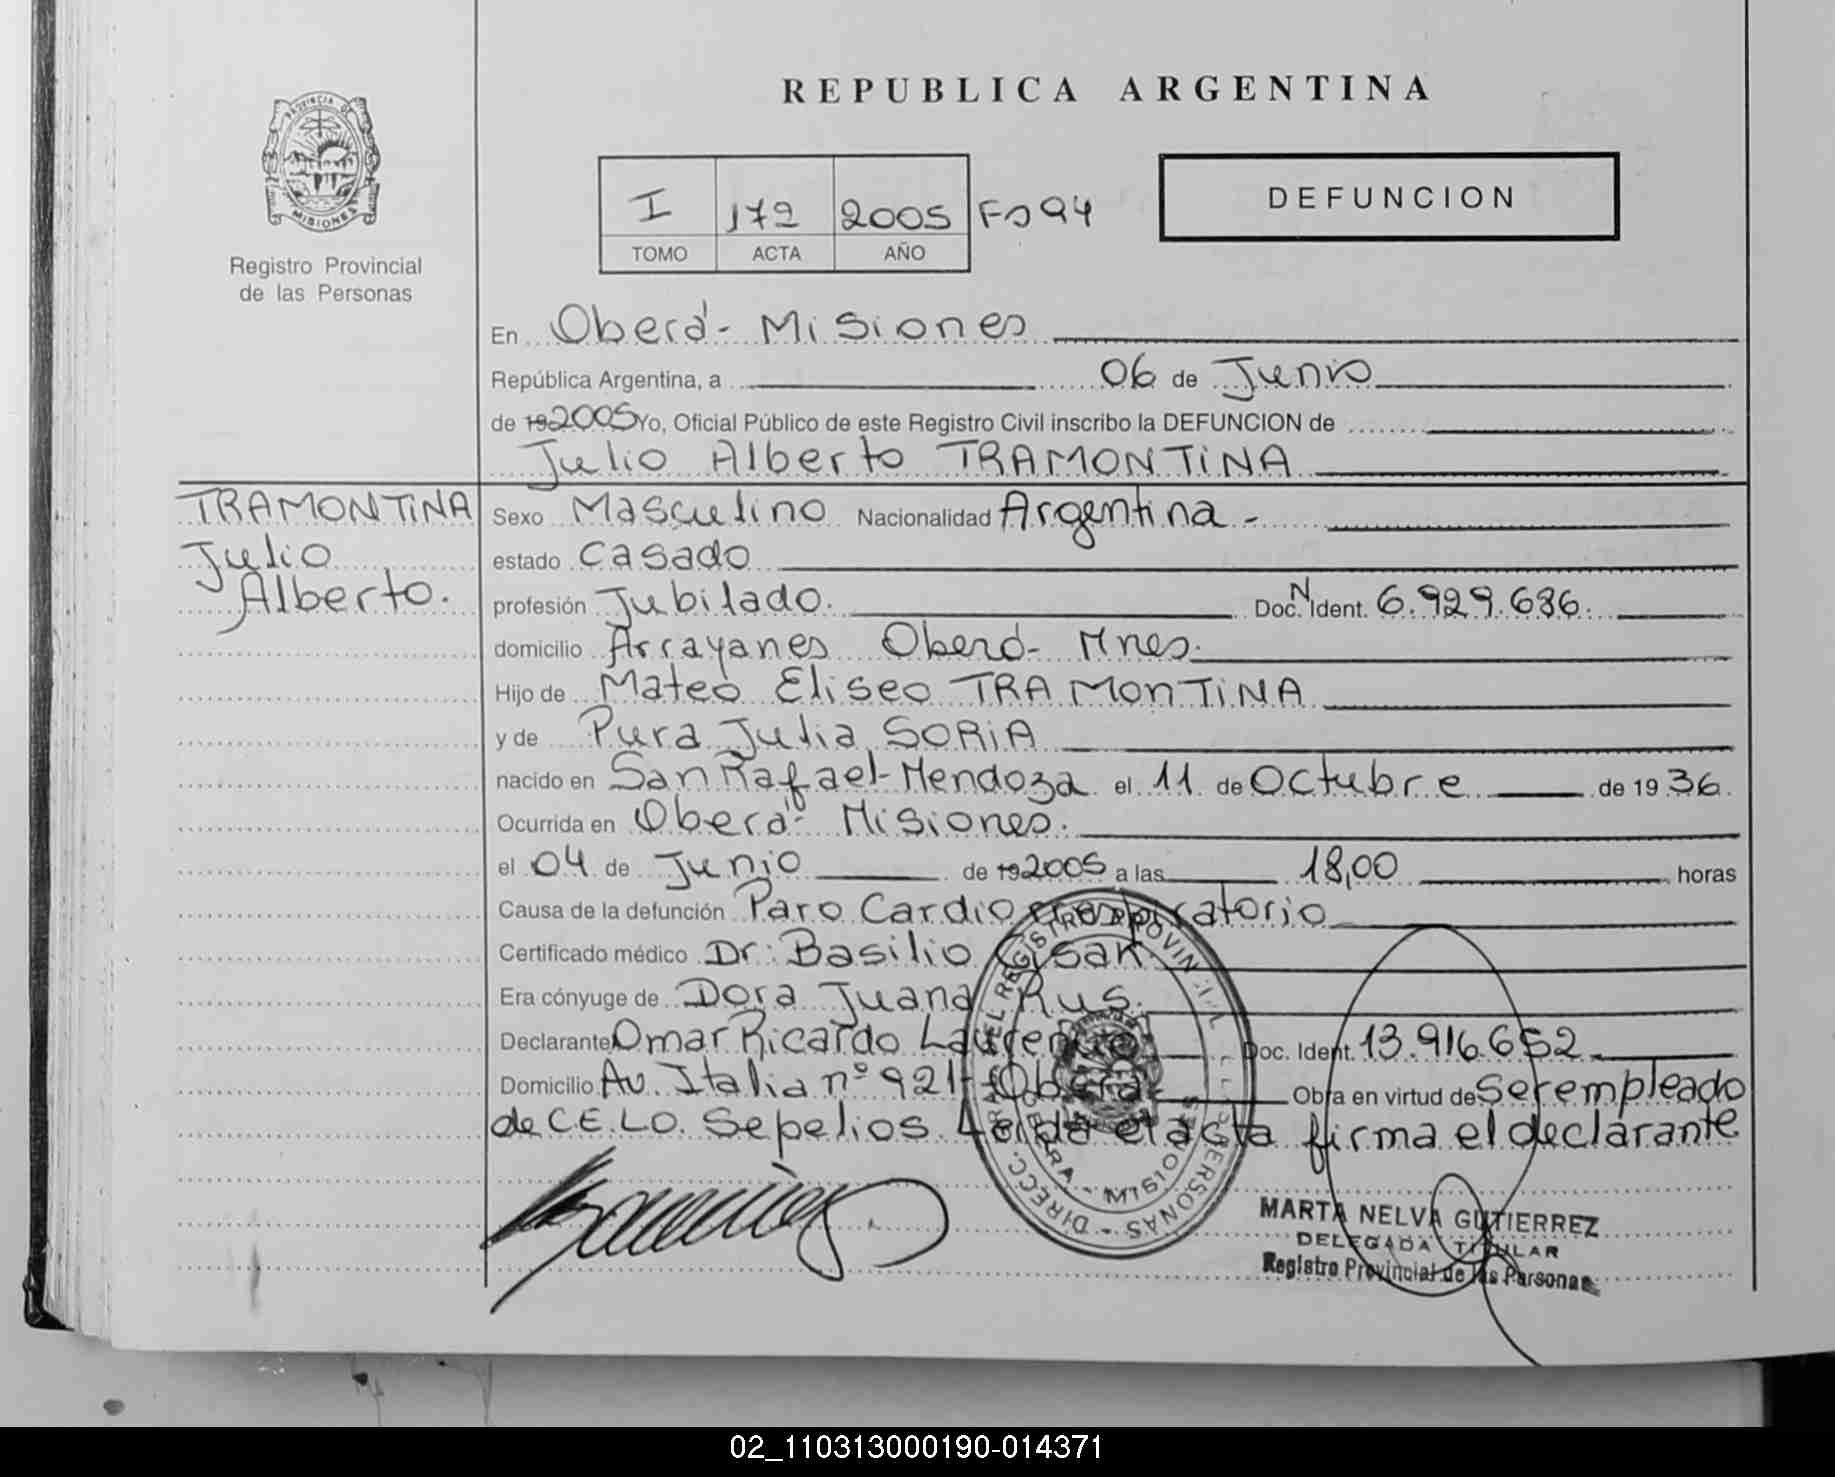 PROVINCIA DE
MISIONES
Registro Provincial
de las Personas
REPUBLICA ARGENTINA
I 172 2005 Fo 94
TOMO ACTA AÑO
DEFUNCION
En Oberá - Misiones
República Argentina, a 06 de Junio
de 19 2005 Yo, Oficial Público de este Registro Civil inscribo la DEFUNCION de
Julio Alberto TRAMONTINA
TRAMONTINA
Julio
Alberto.
Sexo Masculino Nacionalidad Argentina -
estado Casado
profesión Jubilado. Doc. N Ident. 6.929.686.
domicilio Arrayanes Oberá - Mnes.
Hijo de Mateo Eliseo TRAMONTINA
y de Pura Julia SORIA
nacido en San Rafael - Mendoza el 11 de Octubre de 1936.
Ocurrida en Oberá - Misiones.
el 04 de Junio de 19 2005 a las 18,00 horas
Causa de la defunción Paro Cardiorrespiratorio
Certificado médico Dr: Basilio
Era cónyuge de Dora Juana Rus.
Declarante Omar Ricardo Doc. Ident. 13.916.652
Domicilio Av. Italia nº 921 - Oberá - Obra en virtud de Ser empleado
de C.E.L.O. Sepelios. Leída el acta firma el declarante
DIRECC. GRAL. DEL REGISTRO PROVINCIAL DE LAS PERSONAS
OBERA - MISIONES
MARTA NELVA GUTIERREZ
DELEGADA TITULAR
Registro Provincial de las Personas
02_110313000190-014371